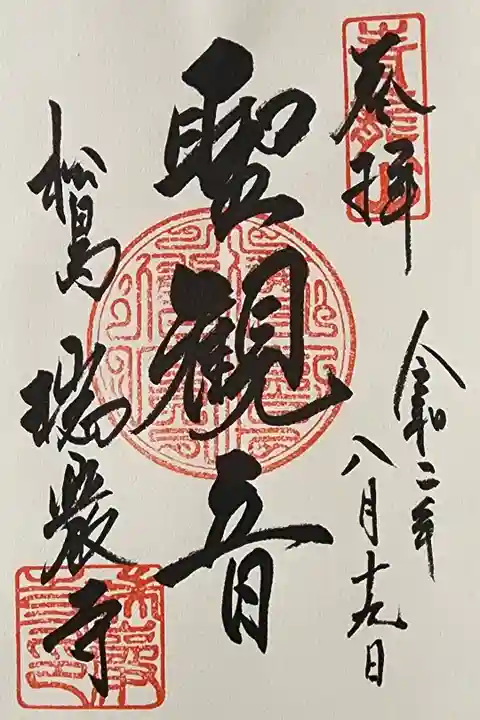 奉拝
令和二年
八月十九日
聖観音
松島 瑞巌寺